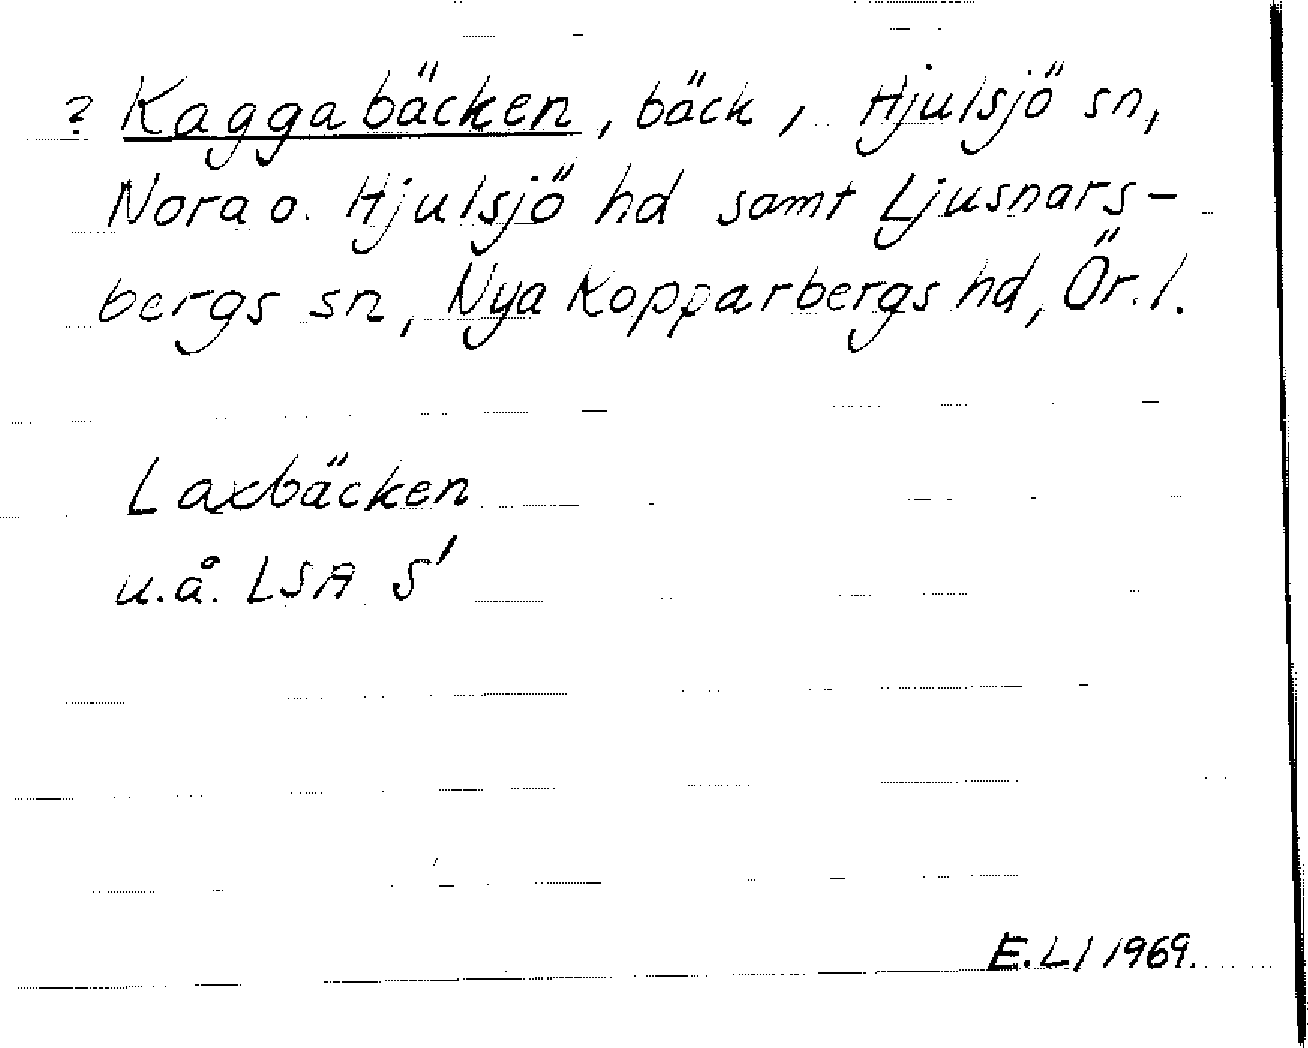 ? Kaggabäcken, bäck, Hjulsjö sn,
Nora o. Hjulsjö hd samt Ljusnars-
bergs sn, Nya Kopparbergs hd, Ör. l.
Laxbäcken
u.å. LSA S'
E.Lj 1969.